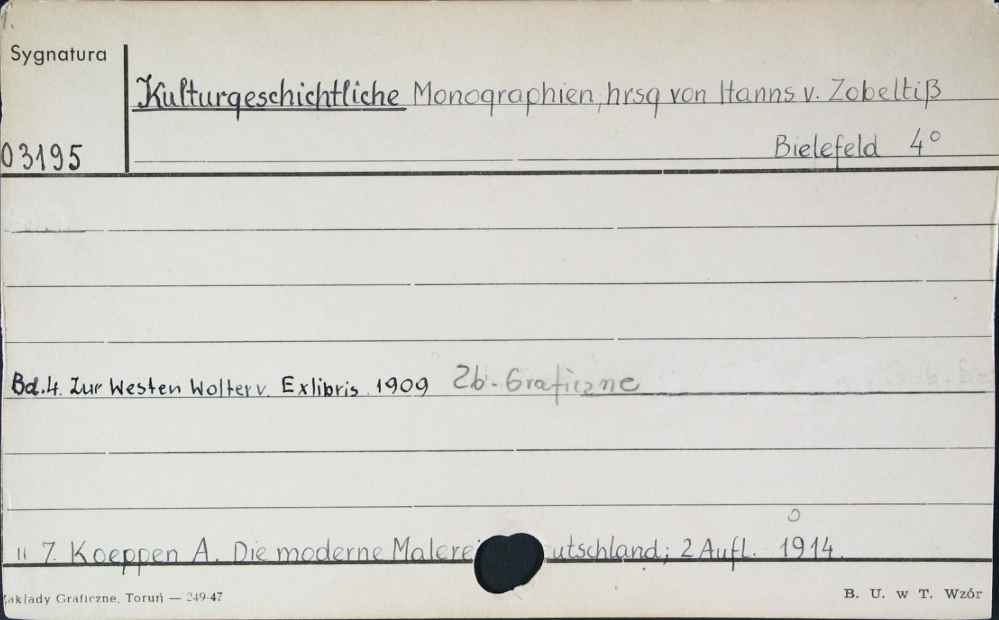 1.
Sygnatura
Kulturgeschichtliche Monographien, hrsg von Hanns v. Zobeltiß
03195
Bielefeld 4°
Bd. 4. Zur Westen Wolter v. Exlibris. 1909 Zb. Graficzne
" 7. Koeppen A. Die moderne Malere utschland; 2 Aufl. 1914.
akłady Graficzne, Toruń — 249-47
B. U. w T. Wzór